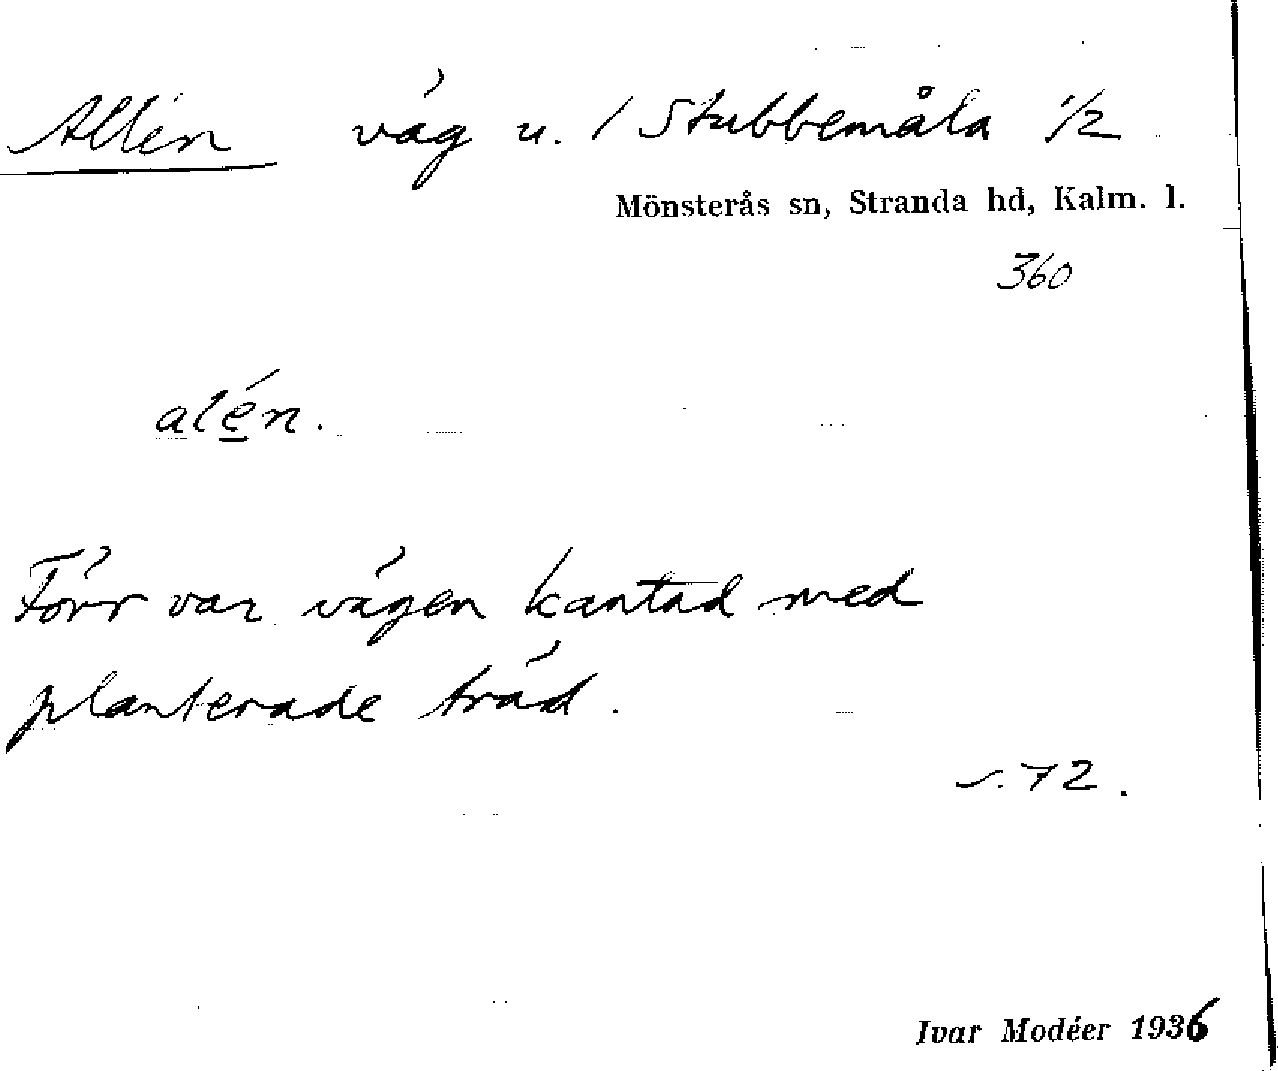 Allén väg u. / Stubbemåla 1/2
Mönsterås sn, Stranda hd, Kalm. l.
360
alén.
Förr var vägen kantad med
planterade träd.
s. 72.
Ivar Modéer 1936